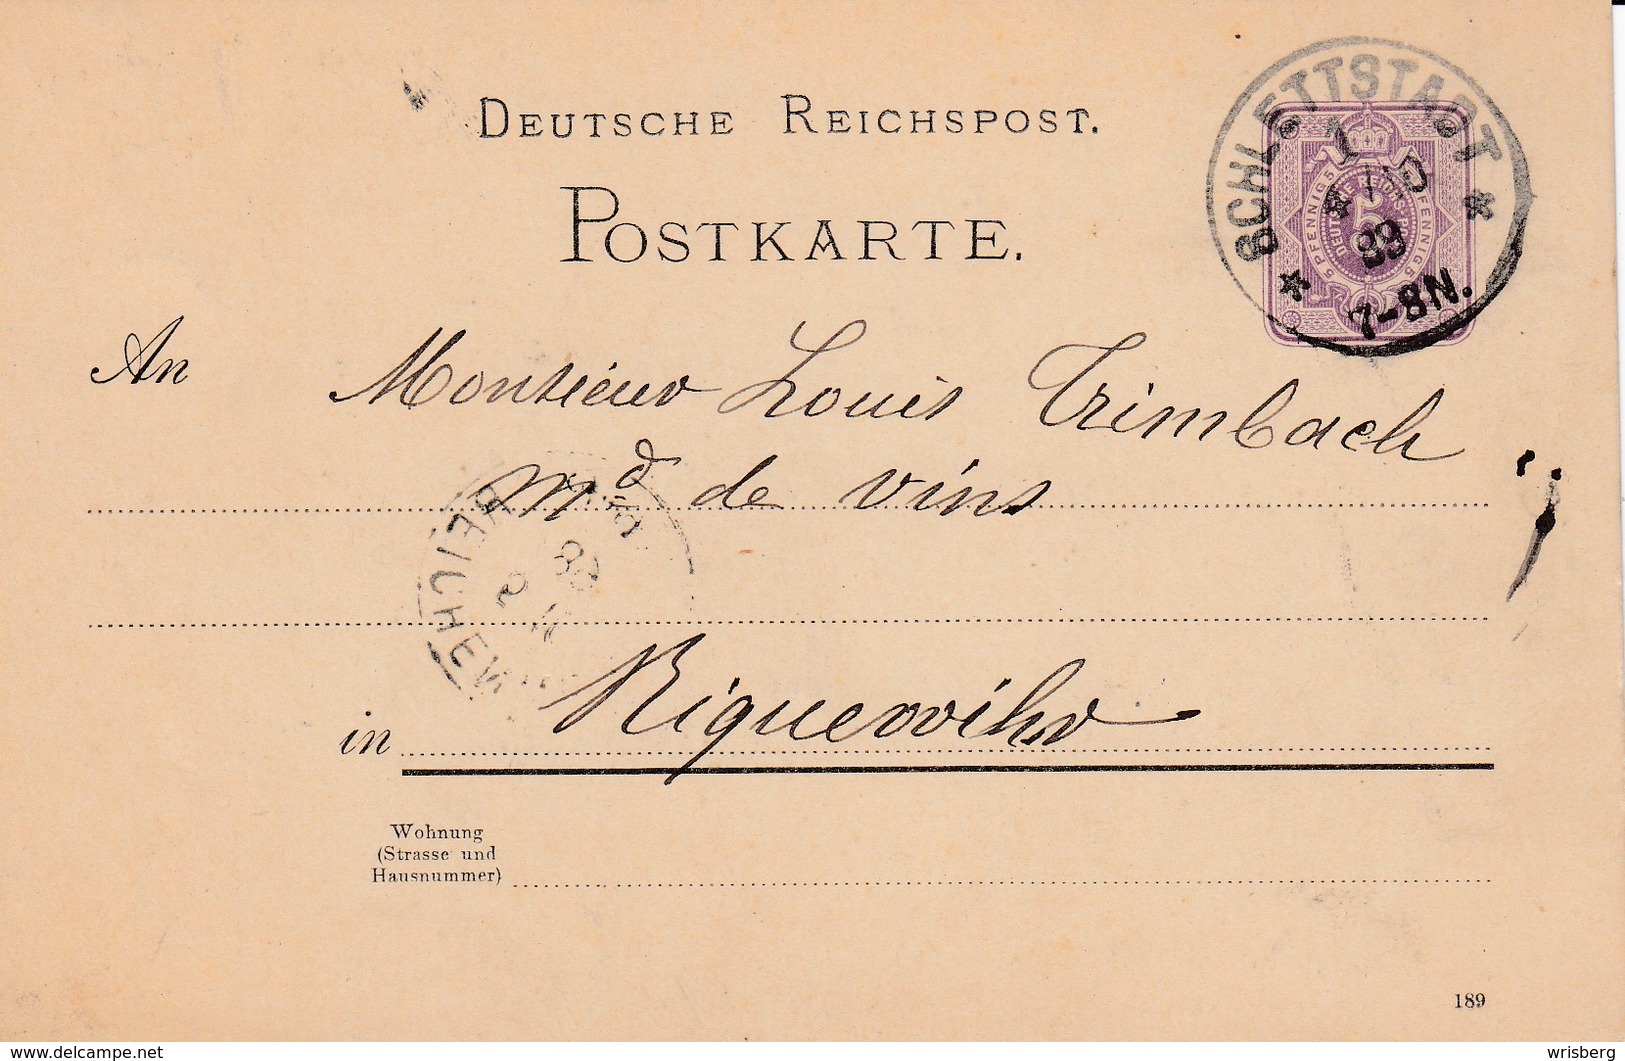 DEUTSCHE REICHSPOST.
POSTKARTE.
SCHLETTSTADT
89
7-8N.
5 PFENNIG 5
PFENNIG 5
DEUTSCHE REICHS
5
An Monsieur Louis Trimbach
md de vins
REICHENW
in Riquewihr
Wohnung
(Strasse und
Hausnummer)
189
www.delcampe.net
wrisberg